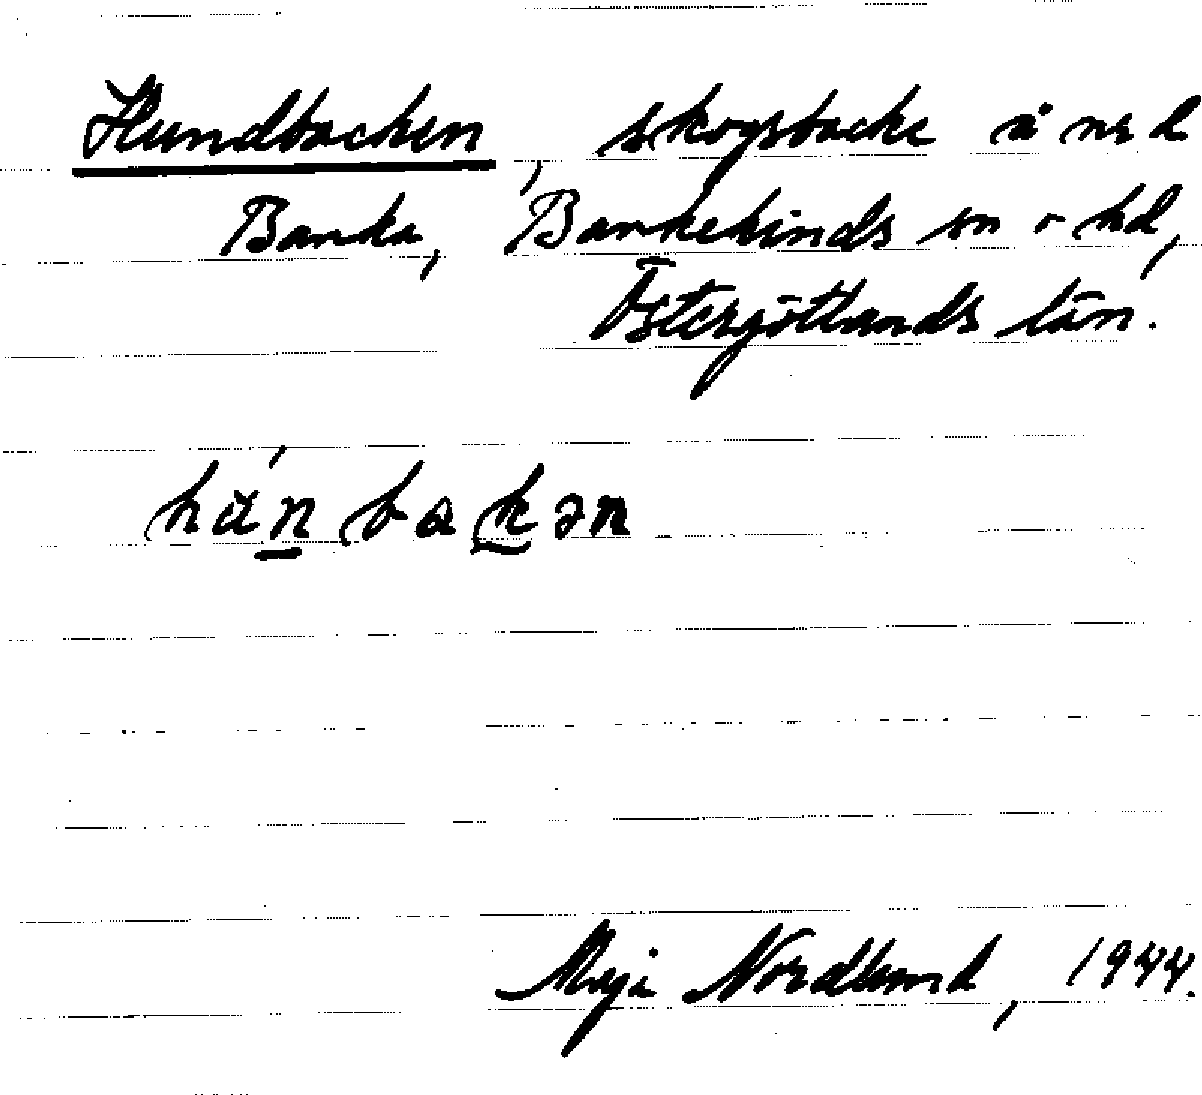 Hundbacken, skogsbacke å nrd
Banka, Bankekinds sn o hd,
Östergötlands län.
hu̇́n bakən
Maja Nordlund, 1944.